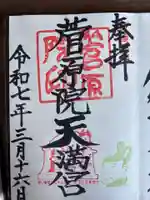 奉拝
菅原院天満宮
令和七年三月十六日